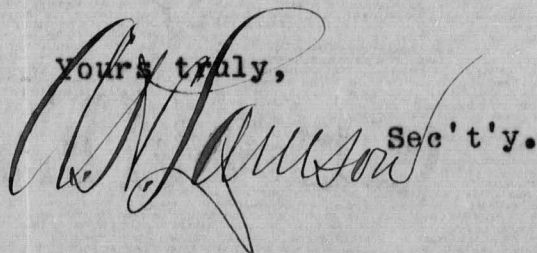 Yours truly,
Lamson
Sec't'y.